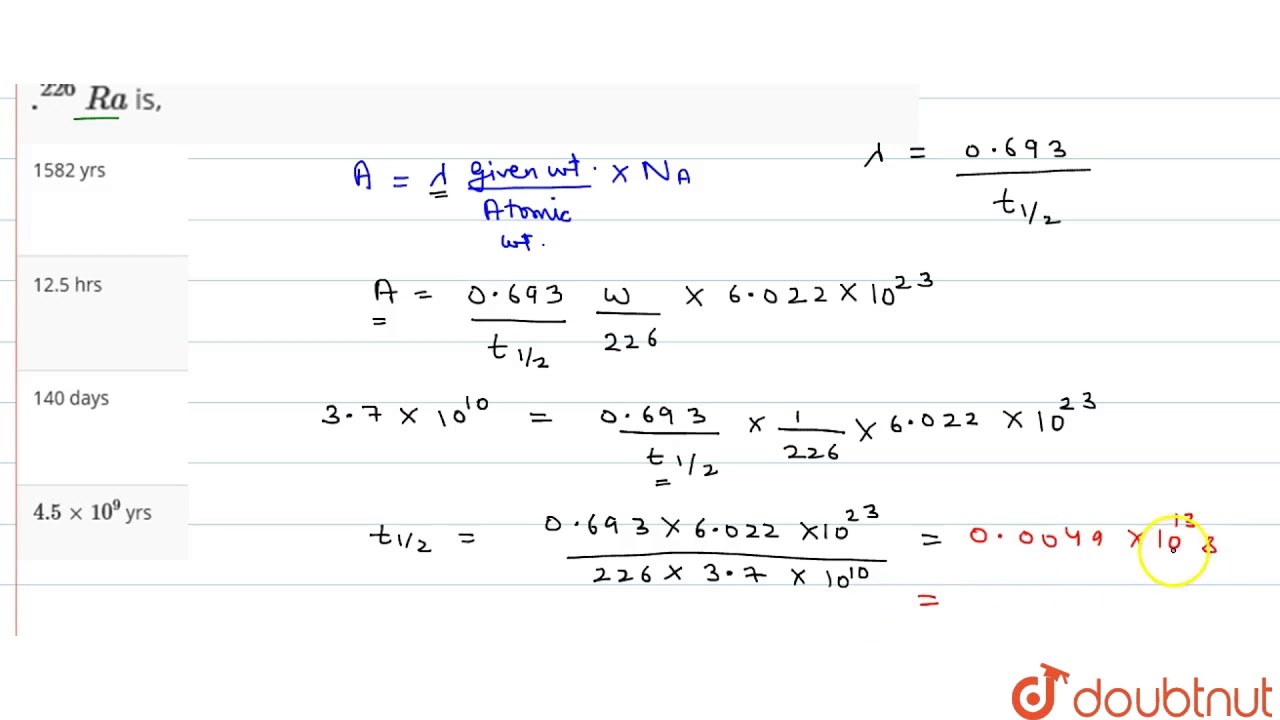 .²²⁶ Ra is,
1582 yrs
12.5 hrs
140 days
4.5 × 10⁹ yrs
A = λ given wt. / Atomic wt. × N_A
λ = 0.693 / t 1/2
A = 0.693 / t 1/2 w / 226 × 6.022 × 10²³
3.7 × 10¹⁰ = 0.693 / t 1/2 × 1 / 226 × 6.022 × 10²³
t 1/2 = 0.693 × 6.022 × 10²³ / 226 × 3.7 × 10¹⁰ = 0.0049 × 10¹³ s
=
doubtnut